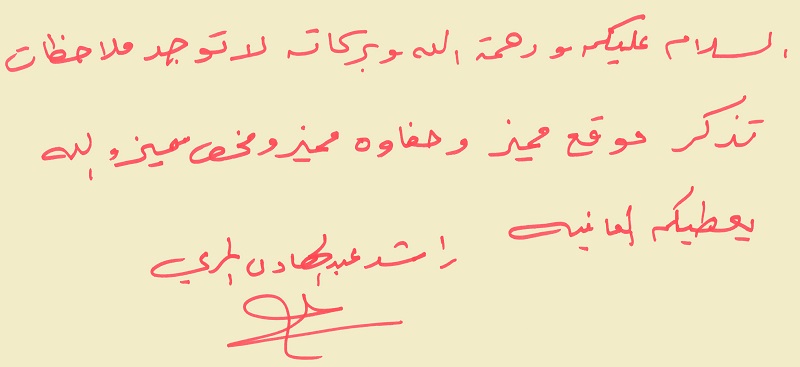 السلام عليكم ورحمة الله وبركاته لا توجد ملاحظات
تذكر موقع مميز وحفاوه مميز ومخرص مميز والله
يعطيكم العافيه
راشد عبدالهادي المري